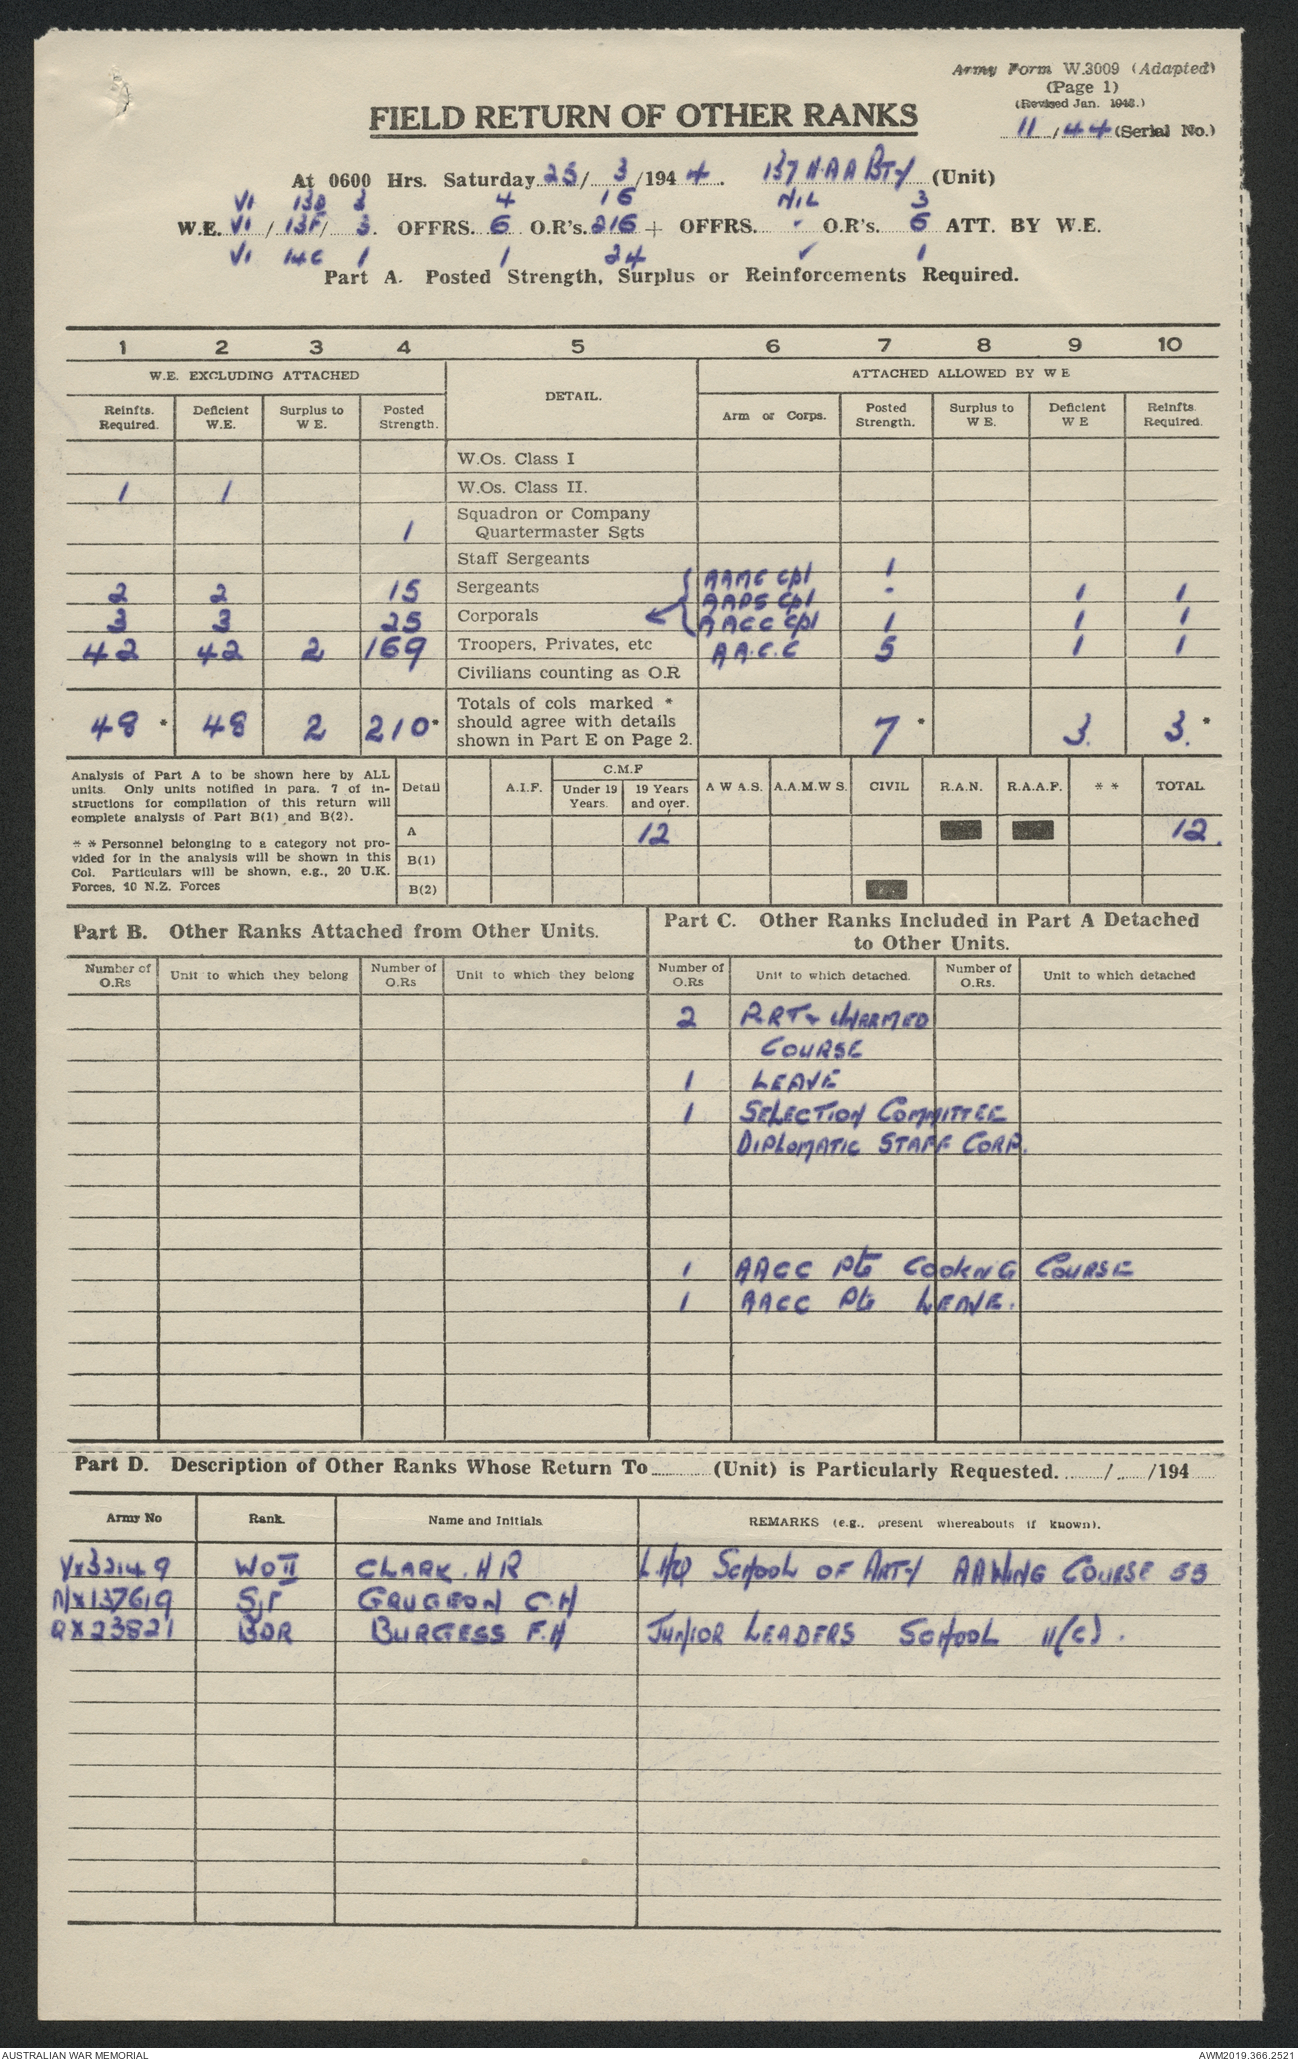 Army Form W.3009 (Adapted)
(Page 1)
(Revised Jan. 1943.)
11/44 (Serial No.)
FIELD RETURN OF OTHER RANKS
At 0600 Hrs. Saturday 25/ 3/194 4. 137 H.A.A Bty (Unit)
VI 13D 3 4 16 NIL 3
W.E. VI / 13F/ 3. OFFRS. 6 O.R's. 216 + OFFRS. - O.R's. 6 ATT. BY W.E.
VI 14C 1 1 24 ✓ 1
Part A. Posted Strength, Surplus or Reinforcements Required.
1 2 3 4 5 6 7 8 9 10
W.E. EXCLUDING ATTACHED DETAIL. ATTACHED ALLOWED BY W E
Reinfts. Required. Deficient W.E. Surplus to W E. Posted Strength. Arm or Corps. Posted Strength. Surplus to W E. Deficient W E Reinfts. Required.
W.Os. Class I
1 1 W.Os. Class II.
1 Squadron or Company Quartermaster Sgts
Staff Sergeants
AAMC Cpl 1
2 2 15 Sergeants AADS Cpl - 1 1
3 3 25 Corporals AACC Cpl 1 1 1
42 42 2 169 Troopers, Privates, etc A A.C.C 5 1 1
Civilians counting as O.R
48 * 48 2 210 * Totals of cols marked * should agree with details shown in Part E on Page 2. 7 * 3. 3. *
Analysis of Part A to be shown here by ALL
units. Only units notified in para. 7 of in-
structions for compilation of this return will
complete analysis of Part B(1) and B(2).
* * Personnel belonging to a category not pro-
vided for in the analysis will be shown in this
Col. Particulars will be shown, e.g., 20 U.K.
Forces, 10 N.Z. Forces
Detail A.I.F. C.M.F Under 19 Years. 19 Years and over. A W A.S. A.A.M.W S. CIVIL R.A.N. R.A.A.F. * * TOTAL
A 12 12.
B(1)
B(2)
Part B. Other Ranks Attached from Other Units.
Part C. Other Ranks Included in Part A Detached
to Other Units.
Number of O.Rs Unit to which they belong Number of O.Rs Unit to which they belong Number of O.Rs Unit to which detached. Number of O.Rs. Unit to which detached
2 P.R.T & UNARMED
COURSE
1 LEAVE
1 SELECTION COMMITTEE
DIPLOMATIC STAFF CORP.
1 AACC Pte COOKNG COURSE
1 AACC Pte LEAVE.
Part D. Description of Other Ranks Whose Return To (Unit) is Particularly Requested. / /194
Army No Rank. Name and Initials REMARKS (e.g., present whereabouts if known).
VX32149 WO II CLARK. H R LHQ SCHOOL OF ARTY AA WING COURSE 53
NX137619 SJT GRUGEON C.H
QX23821 BDR BURGESS F.H JUNIOR LEADERS SCHOOL 11(C).
AUSTRALIAN WAR MEMORIAL AWM2019.366.2521